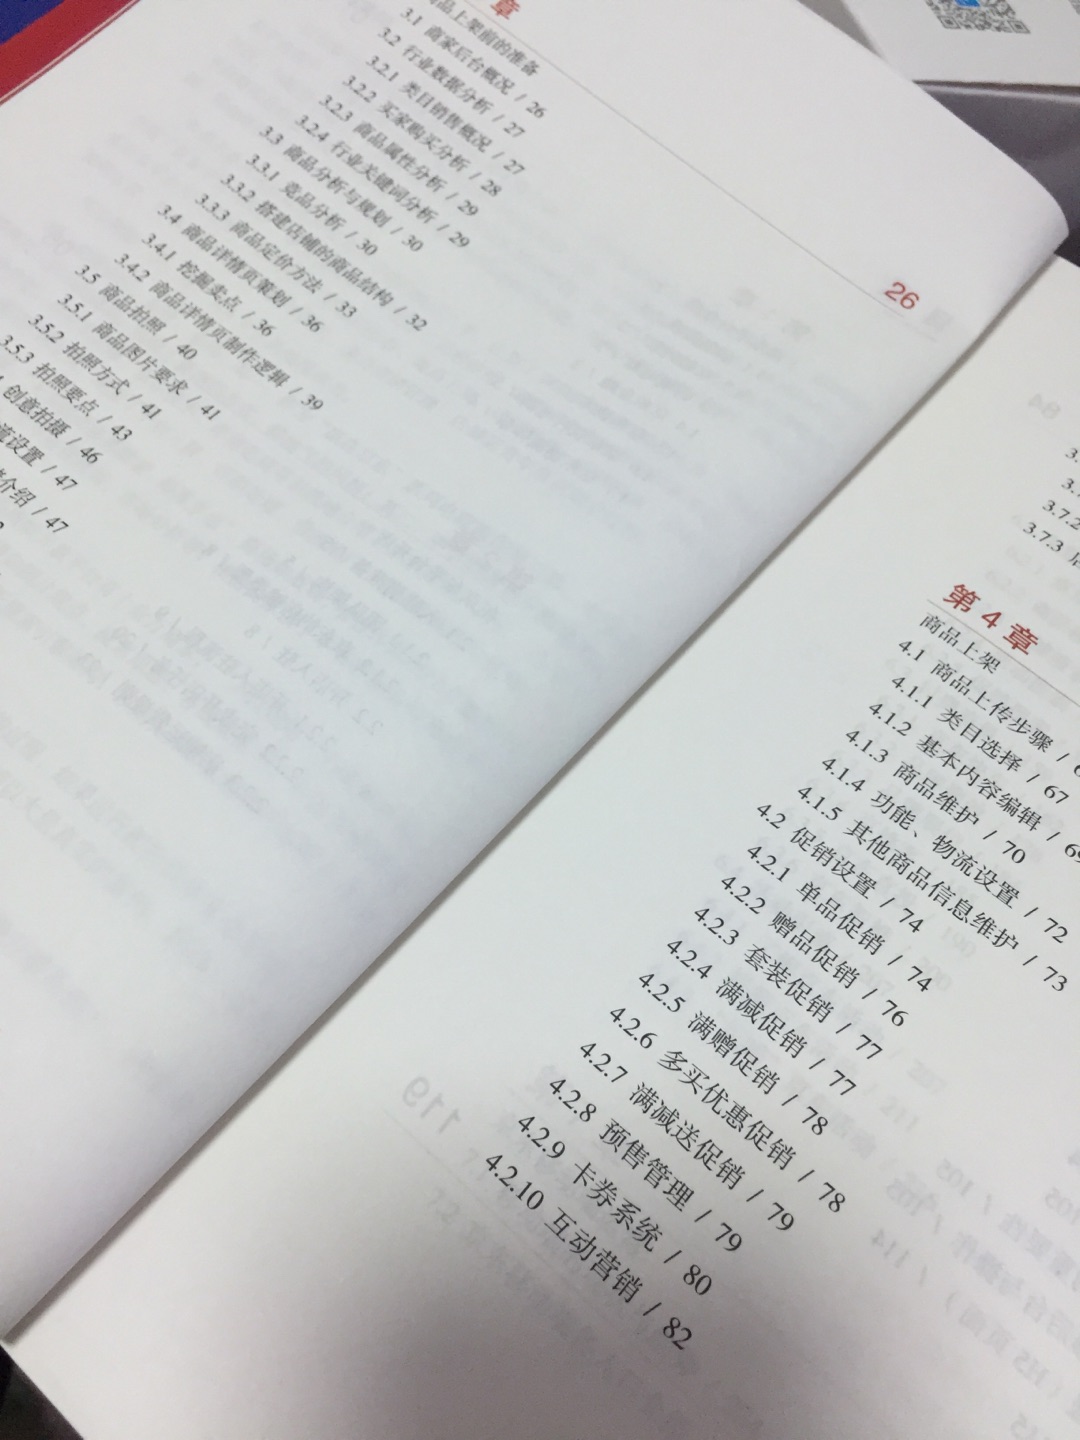 章
商品上架前的准备
26
3.1 商家后台概况 / 26
3.2 行业数据分析 / 27
3.2.1 类目销售概况 / 27
3.2.2 买家购买分析 / 28
3.2.3 商品属性分析 / 29
3.2.4 行业关键词分析 / 29
3.3 商品分析与规划 / 30
3.3.1 竞品分析 / 30
3.3.2 搭建店铺的商品结构 / 32
3.3.3 商品定价方法 / 33
3.4 商品详情页策划 / 36
3.4.1 挖掘卖点 / 36
3.4.2 商品详情页制作逻辑 / 39
3.5 商品拍照 / 40
3.5.1 商品图片要求 / 41
3.5.2 拍照方式 / 41
3.5.3 拍照要点 / 43
创意拍摄 / 46
流设置 / 47
介绍 / 47
3.
3.7
3.7.2
3.7.3
第 4 章
商品上架
4.1 商品上传步骤 /
4.1.1 类目选择 / 67
4.1.2 基本内容编辑 / 69
4.1.3 商品维护 / 70
4.1.4 功能、物流设置 / 72
4.1.5 其他商品信息维护 / 73
4.2 促销设置 / 74
4.2.1 单品促销 / 74
4.2.2 赠品促销 / 76
4.2.3 套装促销 / 77
4.2.4 满减促销 / 77
4.2.5 满赠促销 / 78
4.2.6 多买优惠促销 / 78
4.2.7 满减送促销 / 79
4.2.8 预售管理 / 79
4.2.9 卡券系统 / 80
4.2.10 互动营销 / 82